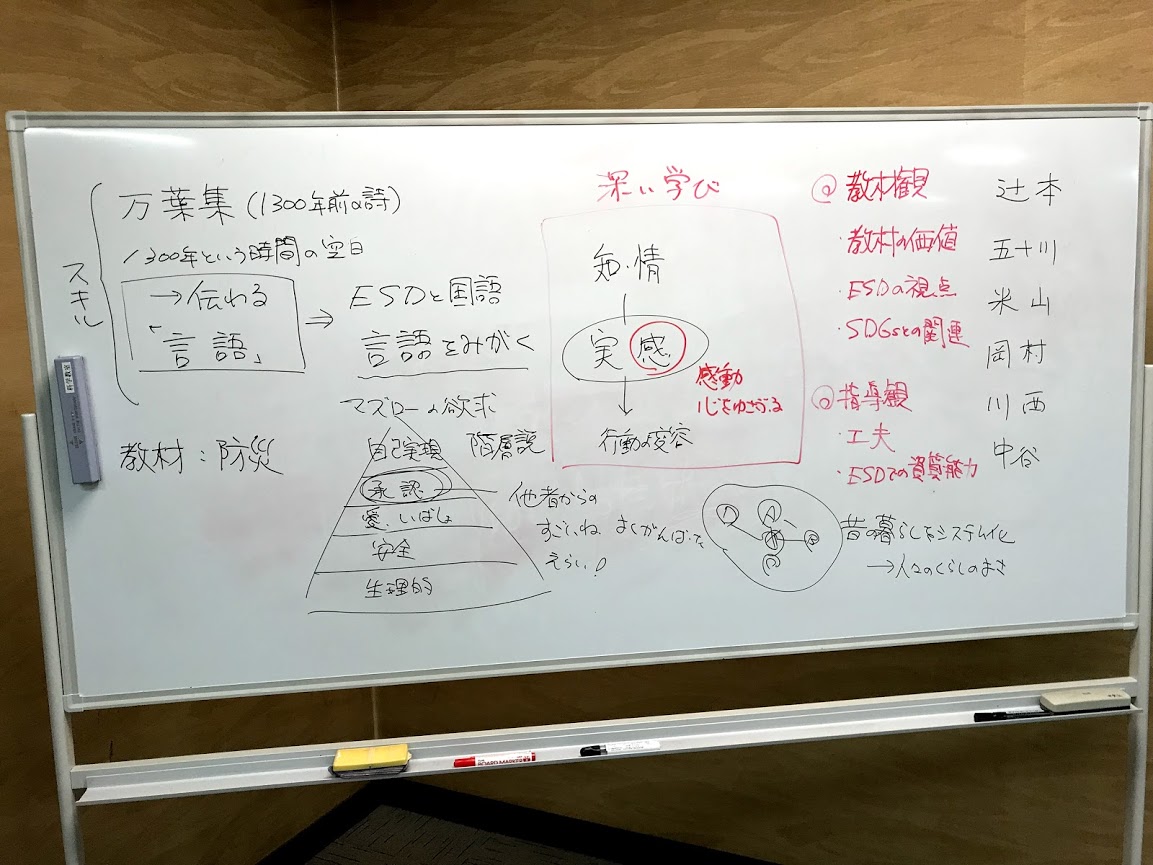 スキル
万葉集(1300年前の詩)
1300年という時間の空白
→伝わる
「言語」
⇒
ESDと国語
言語をみがく
教材：防災
マズローの欲求
階層説
自己実現
承認
愛、いばしょ
安全
生理的
他者からの
すごいね、よくがんばったな
えらい！
深い学び
知・情
実感
感動
心をゆさぶる
行動の変容
教材観
・教材の価値
・ESDの視点
・SDGsとの関連
指導観
・工夫
・ESDでの資質能力
昔の暮らしをシステム化
→人々のくらしのよさ
辻本
五十川
米山
岡村
川西
中谷
科学教室
BOARD MARKER